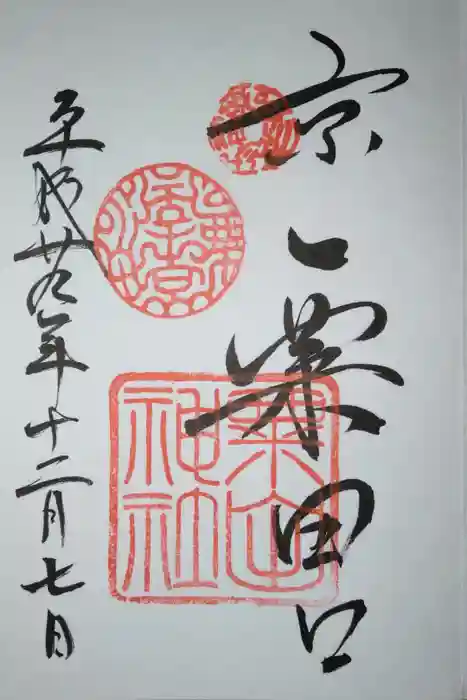 京粟田口
粟田神社
平成廿九年十二月七日